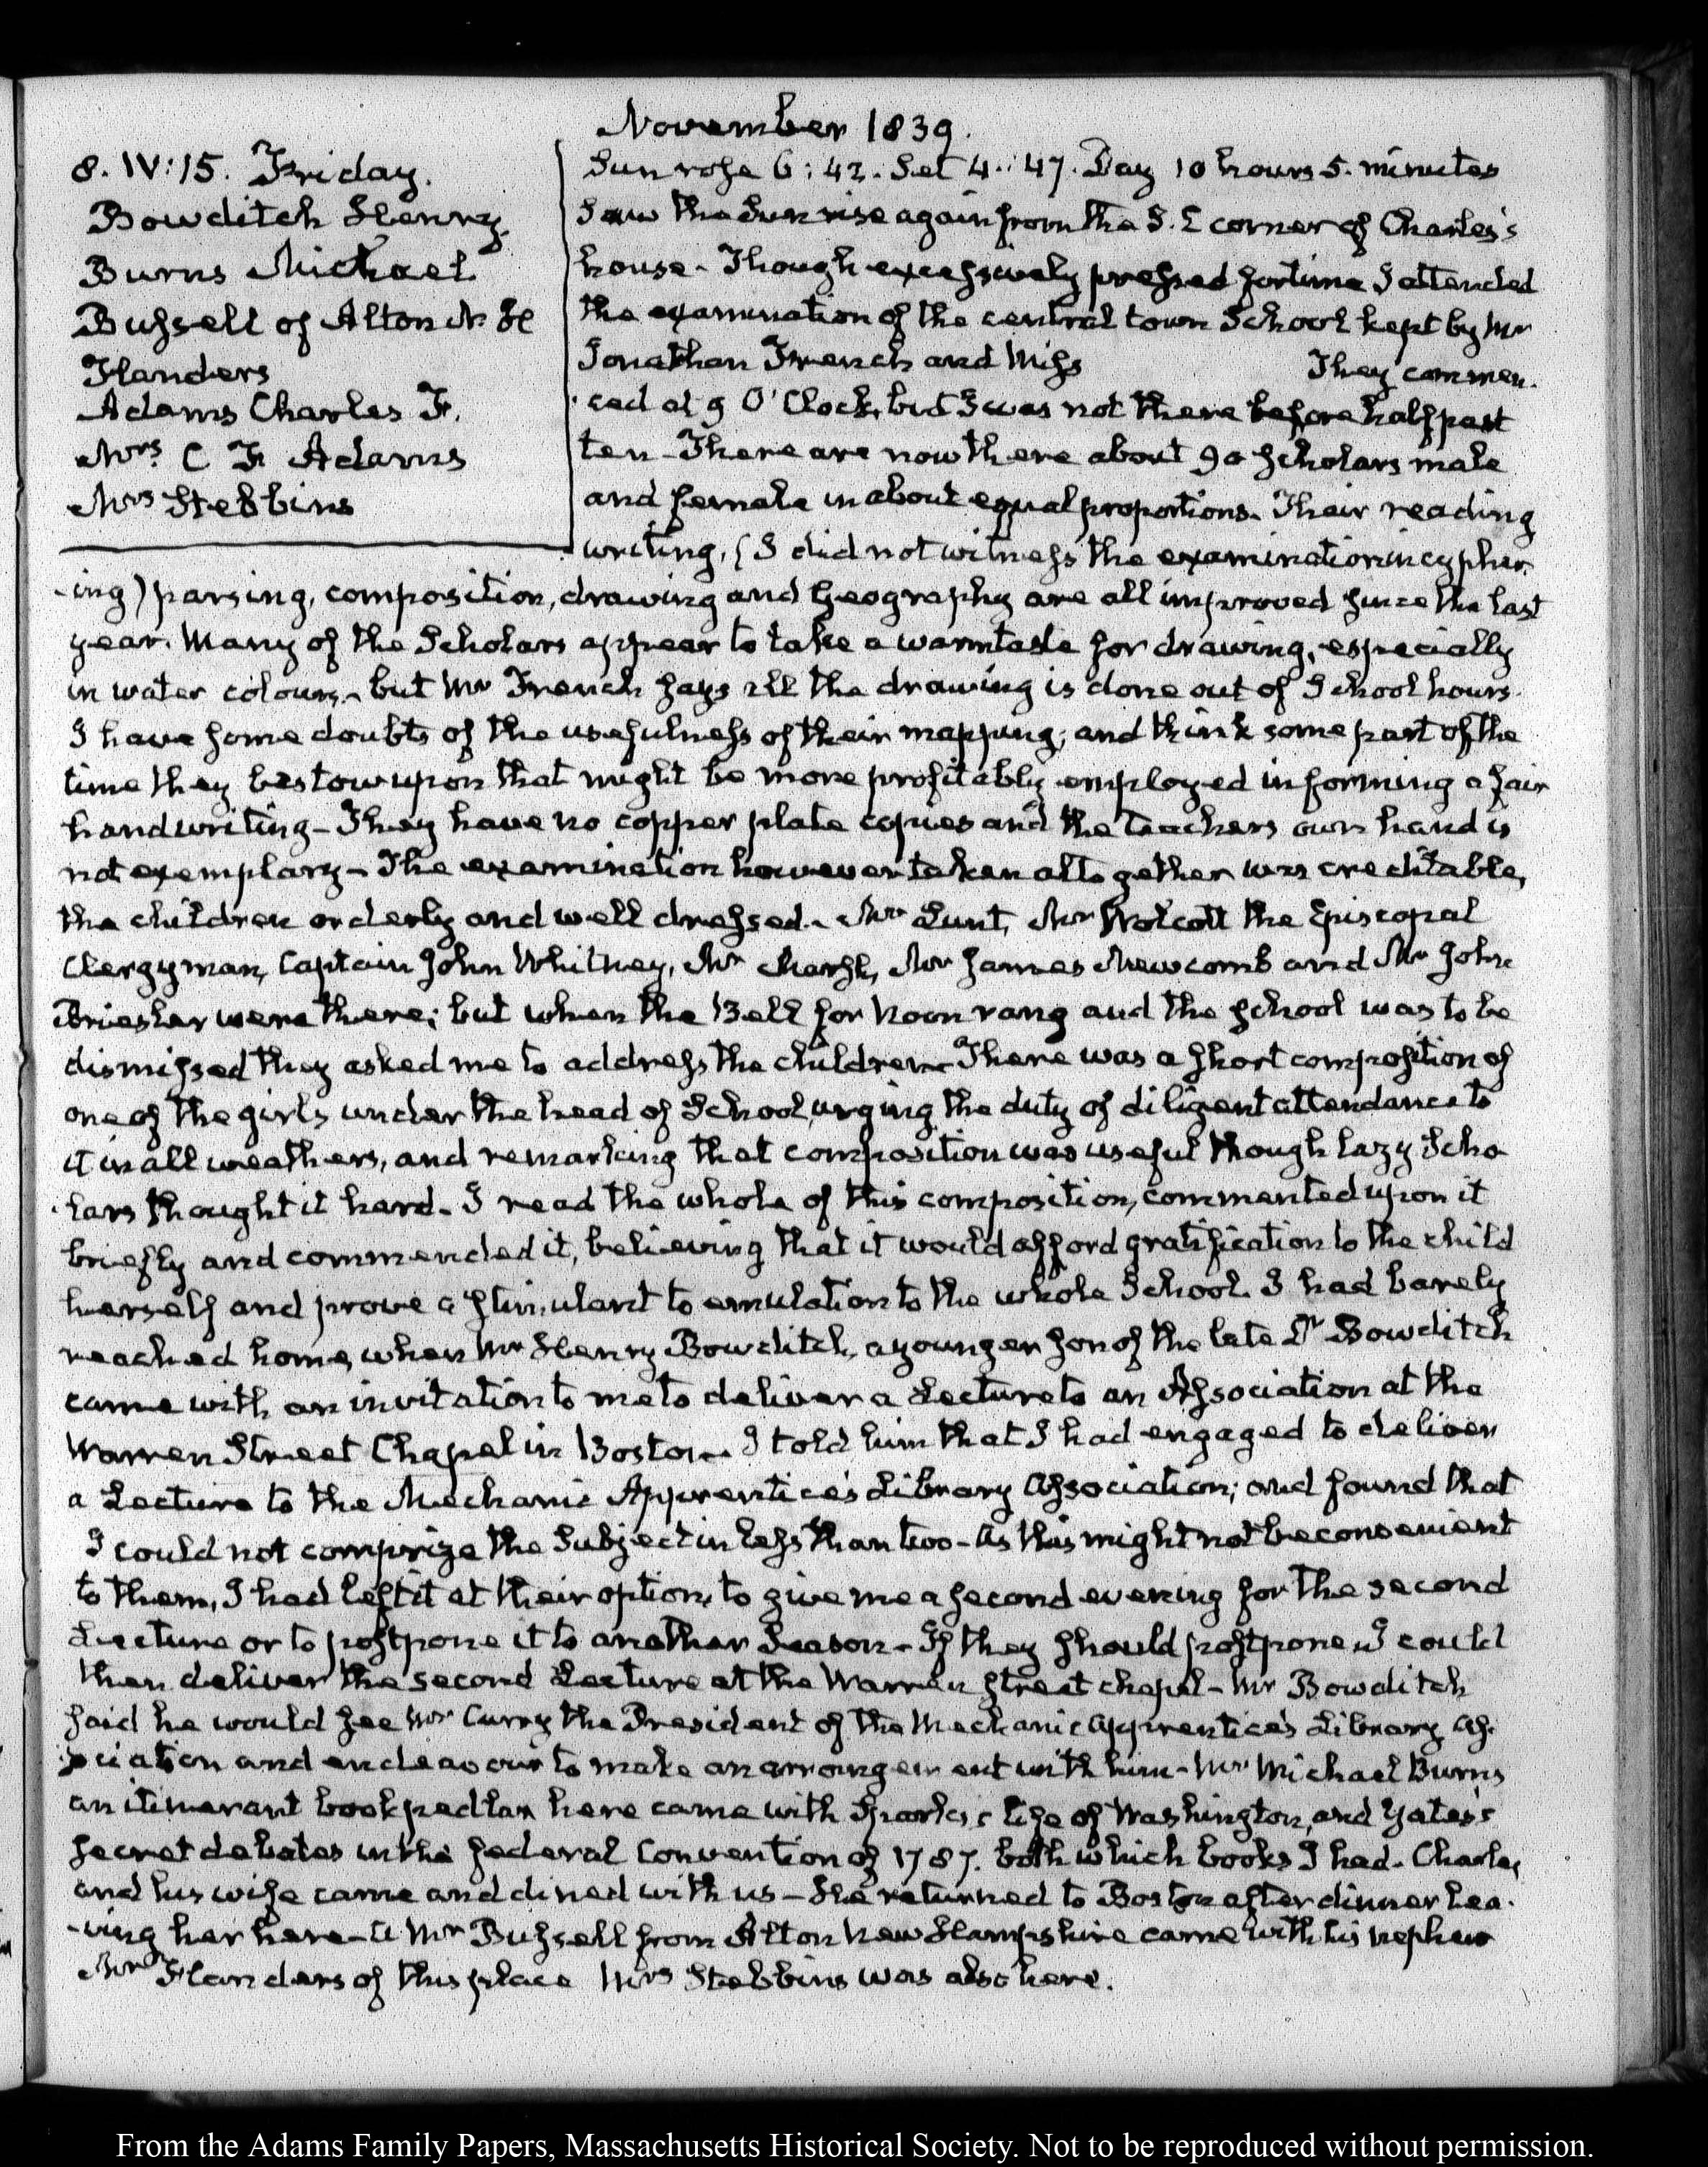 November 1839.
8. IV:15. Friday.
Bowditch Henry.
Burns Michael
Bussell of Alton N. H
Flanders
Adams Charles F.
Mrs. C F Adams
Mrs Stebbins
Sun rose 6:42. Set 4:47. Day 10 hours 5. minutes
Saw the Sun rise again from the S. E corner of Charles's
house. Though excessively pressed for time I attended
the examination of the central town School kept by Mr
Jonathan French and Miss They commen-
-ced at 9 O'Clock, but I was not there before half past
ten - There are now there about 90 scholars male
and female in about equal proportions. Their reading
writing, (I did not witness the examination in cypher
-ing) parsing, composition, drawing and Geography are all improved since the last
year. Many of the Scholars appear to take a warm taste for drawing, especially
in water colours - but Mr French says all the drawing is done out of School hours.
I have some doubts of the usefulness of their mapping; and think some part of the
time they bestow upon that might be more profitably employed in forming a fair
handwriting - They have no copper plate copies and the teachers own hand is
not exemplary - The examination however taken altogether was creditable,
the children orderly and well dressed. Mr Lunt, Mr Wolcott the Episcopal
Clergyman, Captain John Whitney, Mr Marsh, Mr James Newcomb and Mr John
Briesler were there; but when the Bell for Noon rang and the school was to be
dismissed they asked me to address the children - There was a short composition of
one of the girls under the head of School, urging the duty of diligent attendance to
it in all weathers, and remarking that composition was useful though lazy Scho
-lars thought it hard. I read the whole of this composition, commented upon it
briefly and commended it, believing that it would afford gratification to the child
herself and prove a stimulant to emulation to the whole School. I had barely
reached home, when Mr Henry Bowditch, a younger son of the late Dr Bowditch
came with an invitation to me to deliver a Lecture to an Association at the
Warren Street Chapel in Boston. I told him that I had engaged to deliver
a Lecture to the Mechanic Apprentices Library Association; and found that
I could not comprize the Subject in less than two - As this might not be convenient
to them, I had left it at their option, to give me a second evening for the second
Lecture or to postpone it to another Season - If they should postpone it I could
then deliver the second Lecture at the Warren street chapel - Mr Bowditch
said he would see Mr Curry the President of the Mechanic Apprentices Library As-
sociation and endeavour to make an arrangement with him - Mr Michael Burns
an itinerant book pedlar here came with Sparks's life of Washington, and Yates's
secret debates in the federal Convention of 1787. both which books I had. Charles
and his wife came and dined with us - He returned to Boston after dinner lea-
-ving her here - A Mr Bussell from Alton New Hampshire came with his nephew
Mr Flanders of this place Mrs Stebbins was also here.
From the Adams Family Papers, Massachusetts Historical Society. Not to be reproduced without permission.